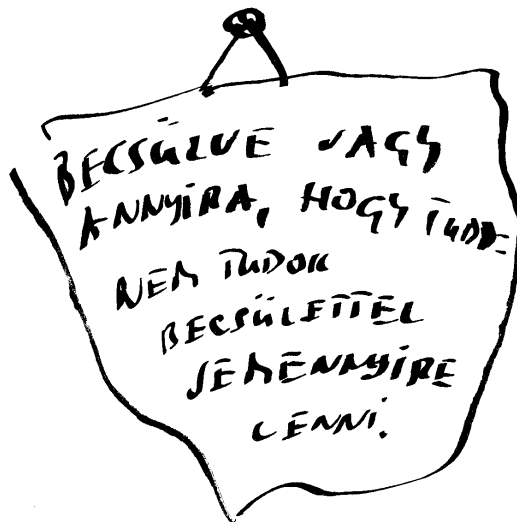 BECSÜLVE VAGY
ANNYIRA, HOGY TUDD:
NEM TUDOK
BECSÜLETTEL
SEMENNYIRE
LENNI.